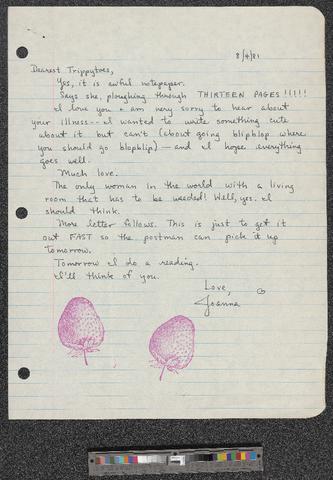 8/4/81
Dearest Trippytoes,
Yes, it is awful notepaper.
Says she, ploughing through THIRTEEN PAGES!!!!!
I love you & am very sorry to hear about
your illness -- I wanted to write something cute
about it but can't (about going blipblop where
you should go blopblip) -- and I hope everything
goes well.
Much love.
The only woman in the world with a living
room that has to be weeded! Well, yes. I
should think.
More letter follows. This is just to get it
out FAST so the postman can pick it up
tomorrow.
Tomorrow I do a reading.
I'll think of you.
Love,
Joanna